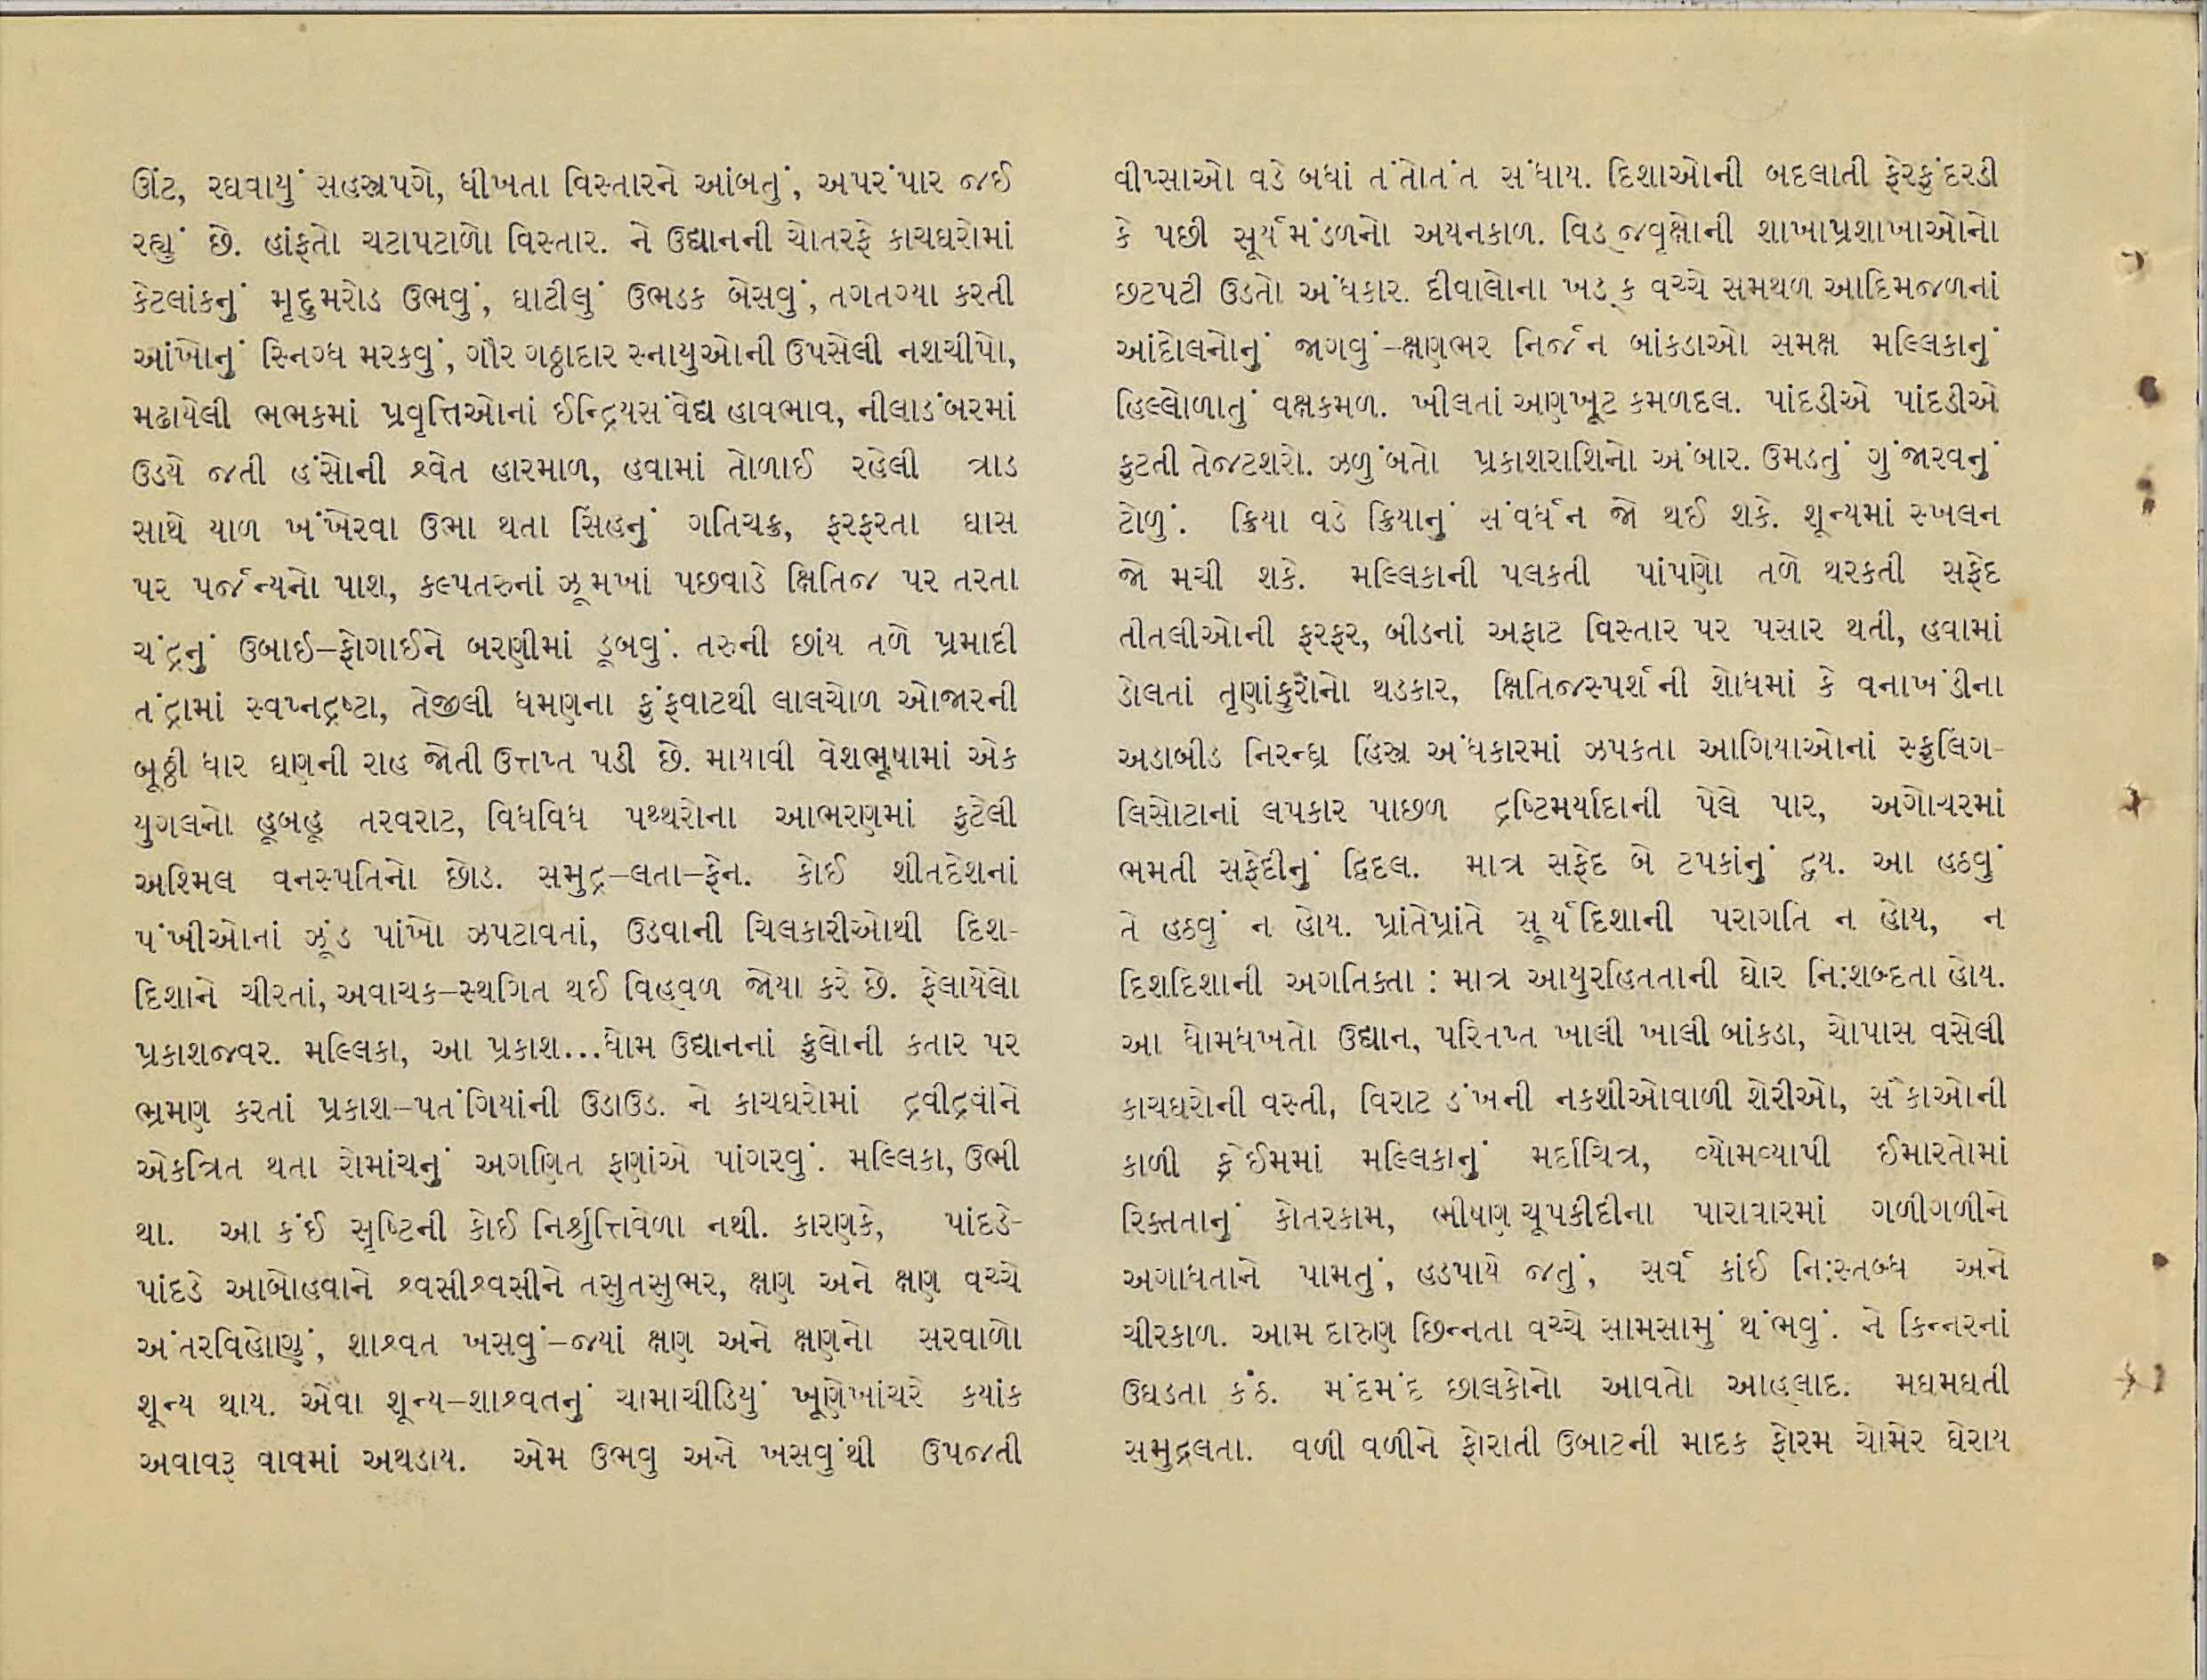 ઊંટ, રઘવાયું સહસ્ત્રપગે, ધીખતા વિસ્તારને આંબતું, અપરંપાર જઈ
રહ્યું છે. હાંફતો ચટાપટાળો વિસ્તાર. ને ઉદ્યાનની ચોતરફે કાચઘરોમાં
કેટલાંકનું મૃદુમરોડ ઉભવું, ઘાટીલું ઉભડક બેસવું, તગતગ્યા કરતી
આંખોનું સ્નિગ્ધ મરકવું, ગૌર ગઠ્ઠાદાર સ્નાયુઓની ઉપસેલી નશચીપો,
મઢાયેલી ભભકમાં પ્રવૃત્તિઓનાં ઈન્દ્રિયસંવેદ્ય હાવભાવ, નીલાડંબરમાં
ઉડયે જતી હંસોની શ્વેત હારમાળ, હવામાં તોળાઈ રહેલી ત્રાડ
સાથે યાળ ખંખેરવા ઉભા થતા સિંહનું ગતિચક્ર, ફરફરતા ઘાસ
પર પર્જન્યનો પાશ, કલ્પતરુનાં ઝૂમખાં પછવાડે ક્ષિતિજ પર તરતા
ચંદ્રનું ઉબાઈ–ફોગાઈને બરણીમાં ડૂબવું. તરુની છાંય તળે પ્રમાદી
તંદ્રામાં સ્વપ્નદ્રષ્ટા, તેજીલી ધમણના ફુંફવાટથી લાલચોળ ઓજારની
બૂઠ્ઠી ધાર ઘણની રાહ જોતી ઉત્તપ્ત પડી છે. માયાવી વેશભૂષામાં એક
યુગલનો હૂબહૂ તરવરાટ, વિધવિધ પથ્થરોના આભરણમાં ફુટેલી
અશ્મિલ વનસ્પતિનો છોડ. સમુદ્ર–લતા–ફેન. કોઈ શીતદેશનાં
પંખીઓનાં ઝૂંડ પાંખો ઝપટાવતાં, ઉડવાની ચિલકારીઓથી દિશ-
દિશાને ચીરતાં, અવાચક–સ્થગિત થઈ વિહ્વળ જોયા કરે છે. ફેલાયેલો
પ્રકાશજ્વર. મલ્લિકા, આ પ્રકાશ...ધોમ ઉદ્યાનનાં ફુલોની કતાર પર
ભ્રમણ કરતાં પ્રકાશ–પતંગિયાંની ઉડાઉડ. ને કાચઘરોમાં દ્રવીદ્રવીને
એકત્રિત થતા રોમાંચનું અગણિત ફણાંએ પાંગરવું. મલ્લિકા, ઉભી
થા. આ કંઈ સૃષ્ટિની કોઈ નિર્શ્રુત્તિવેળા નથી. કારણકે, પાંદડે-
પાંદડે આબોહવાને શ્વસીશ્વસીને તસુતસુભર, ક્ષણ અને ક્ષણ વચ્ચે
અંતરવિહોણું, શાશ્વત ખસવું–જયાં ક્ષણ અને ક્ષણનો સરવાળો
શૂન્ય થાય. એવા શૂન્ય–શાશ્વતનું ચામાચીડિયું ખૂણેખાંચરે કયાંક
અવાવરૂ વાવમાં અથડાય. એમ ઉભવુ અને ખસવુંથી ઉપજતી
વીપ્સાઓ વડે બધાં તંતોતંત સંધાય. દિશાઓની બદલાતી ફેરફુંદરડી
કે પછી સૂર્યમંડળનો અયનકાળ. વિડ્જવૃક્ષોની શાખાપ્રશાખાઓનો
છટપટી ઉડતો અંધકાર. દીવાલોના ખડ્ક વચ્ચે સમથળ આદિમજળનાં
આંદોલનોનું જાગવું–ક્ષણભર નિર્જન બાંકડાઓ સમક્ષ મલ્લિકાનું
હિલ્લોળાતું વક્ષકમળ. ખીલતાં અણખૂટ કમળદલ. પાંદડીએ પાંદડીએ
ફુટતી તેજટશરો. ઝળુંબતો પ્રકાશરાશિનો અંબાર. ઉમડતું ગુંજારવનું
ટોળું. ક્રિયા વડે ક્રિયાનું સંવર્ધન જો થઈ શકે. શૂન્યમાં સ્ખલન
જો મચી શકે. મલ્લિકાની પલકતી પાંપણો તળે થરકતી સફેદ
તીતલીઓની ફરફર, બીડનાં અફાટ વિસ્તાર પર પસાર થતી, હવામાં
ડોલતાં તૃણાંકુરોનો થડકાર, ક્ષિતિજસ્પર્શની શોધમાં કે વનાખંડીના
અડાબીડ નિરન્ધ્ર હિંસ્ત્ર અંધકારમાં ઝપકતા આગિયાઓનાં સ્ફુલિંગ-
લિસોટાનાં લપકાર પાછળ દ્રષ્ટિમર્યાદાની પેલે પાર, અગોચરમાં
ભમતી સફેદીનું દ્વિદલ. માત્ર સફેદ બે ટપકાંનું દ્વય. આ હઠવું
તે હઠવું ન હોય. પ્રાંતેપ્રાંતે સૂર્યદિશાની પરાગતિ ન હોય, ન
દિશદિશાની અગતિક્તા : માત્ર આયુરહિતતાની ઘોર નિ:શબ્દતા હોય.
આ ધોમધખતો ઉદ્યાન, પરિતપ્ત ખાલી ખાલી બાંકડા, ચોપાસ વસેલી
કાચઘરોની વસ્તી, વિરાટ ડંખની નકશીઓવાળી શેરીઓ, સૈકાઓની
કાળી ફ્રેઈમમાં મલ્લિકાનું મર્દાચિત્ર, વ્યોમવ્યાપી ઈમારતોમાં
રિક્તતાનું કોતરકામ, ભીષણ ચૂપકીદીના પારાવારમાં ગળીગળીને
અગાધતાને પામતું, હડપાયે જતું, સર્વ કાંઈ નિ:સ્તબ્ધ અને
ચીરકાળ. આમ દારુણ છિન્નતા વચ્ચે સામસામું થંભવું. ને કિન્નરનાં
ઉઘડતા કંઠ. મંદમંદ છાલકોનો આવતો આહ્લાદ. મઘમઘતી
સમુદ્રલતા. વળી વળીને ફોરાતી ઉબાટની માદક ફોરમ ચોમેર ઘેરાય